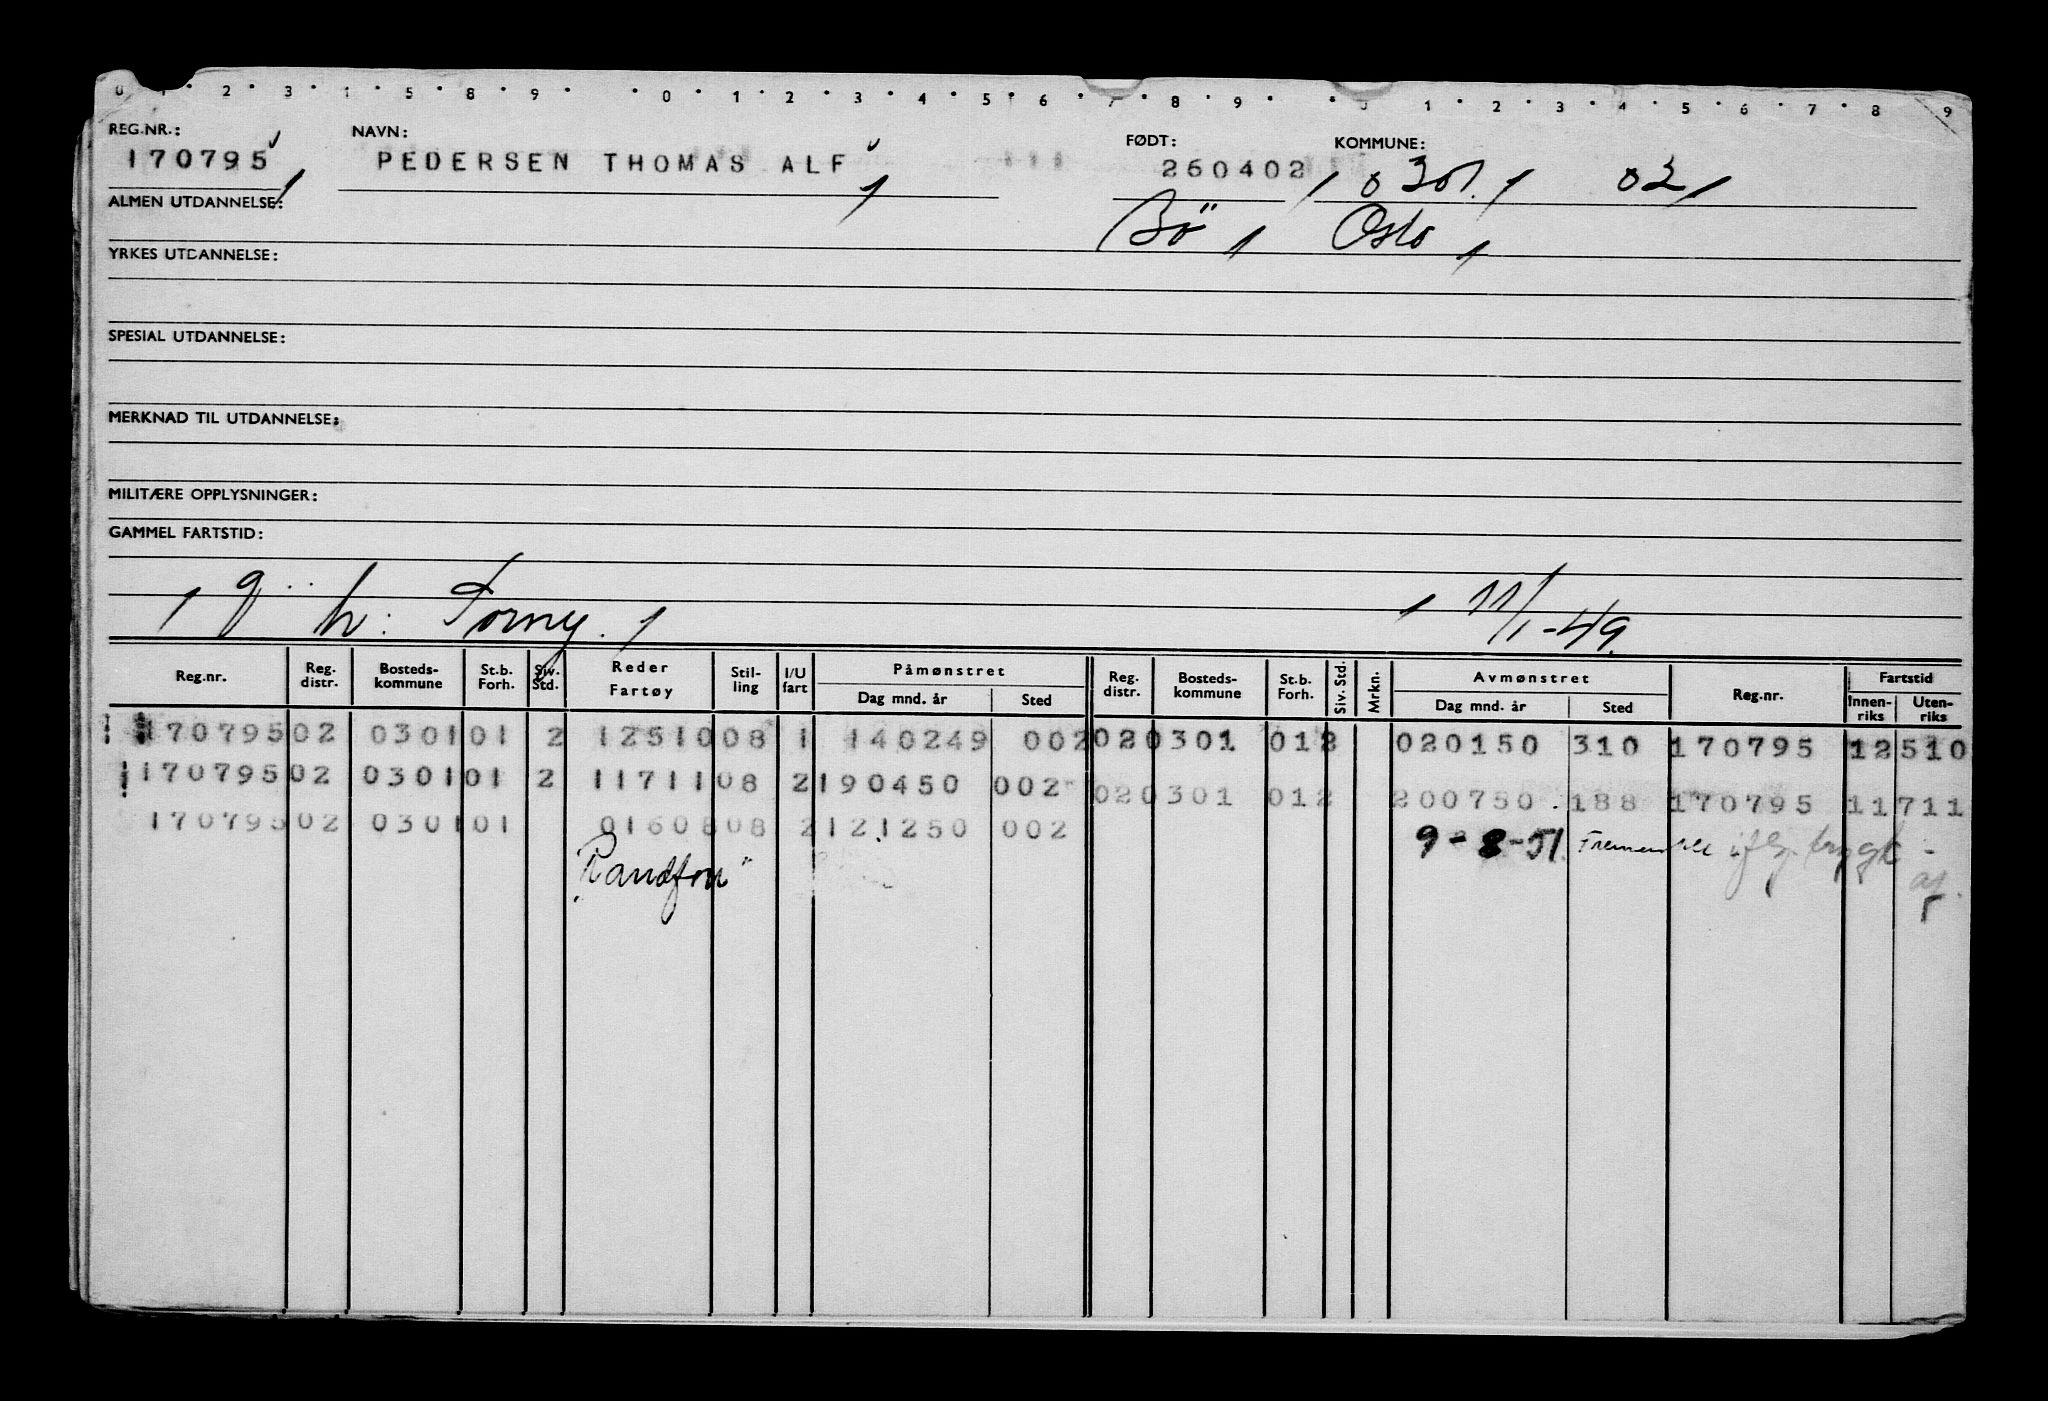 0 1 2 3 1 5 8 9 0 1 2 3 4 5 6 7 8 9 0 1 2 3 4 5 6 7 8 9
REG.NR.: NAVN: FØDT: KOMMUNE:
170795 PEDERSEN THOMAS ALF 260402 0301 02
ALMEN UTDANNELSE: Bö Oslo
YRKES UTDANNELSE:
SPESIAL UTDANNELSE:
MERKNAD TIL UTDANNELSE:
MILITÆRE OPPLYSNINGER:
GAMMEL FARTSTID:
g. h: Torny. 11/1-49.
Reg.nr. Reg. distr. Bosteds-kommune St.b. Forh. Siv. Std. Reder Fartøy Stil-ling I/U fart Påmønstret Dag mnd. år Sted Reg. distr. Bosteds-kommune St.b. Forh. Siv. Std. Mrkn. Avmønstret Dag mnd. år Sted Reg.nr. Fartstid Innen-riks Uten-riks
170795 02 0301 01 2 12510 08 1 140249 002 02 0301 01 2 020150 310 170795 12510
170795 02 0301 01 2 11711 08 2 190450 002 02 0301 01 2 200750 188 170795 11711
170795 02 0301 01 01608 08 2 121250 002 9-8-51
"Randfon"